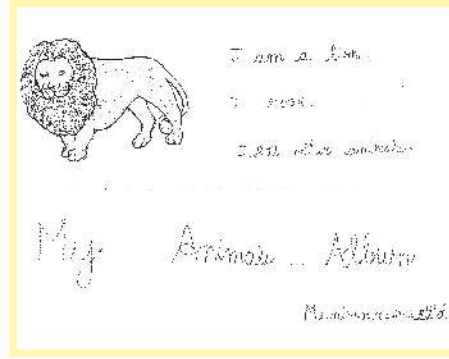 I am a lion.
I roar.
I eat other animals.
My Animal Album